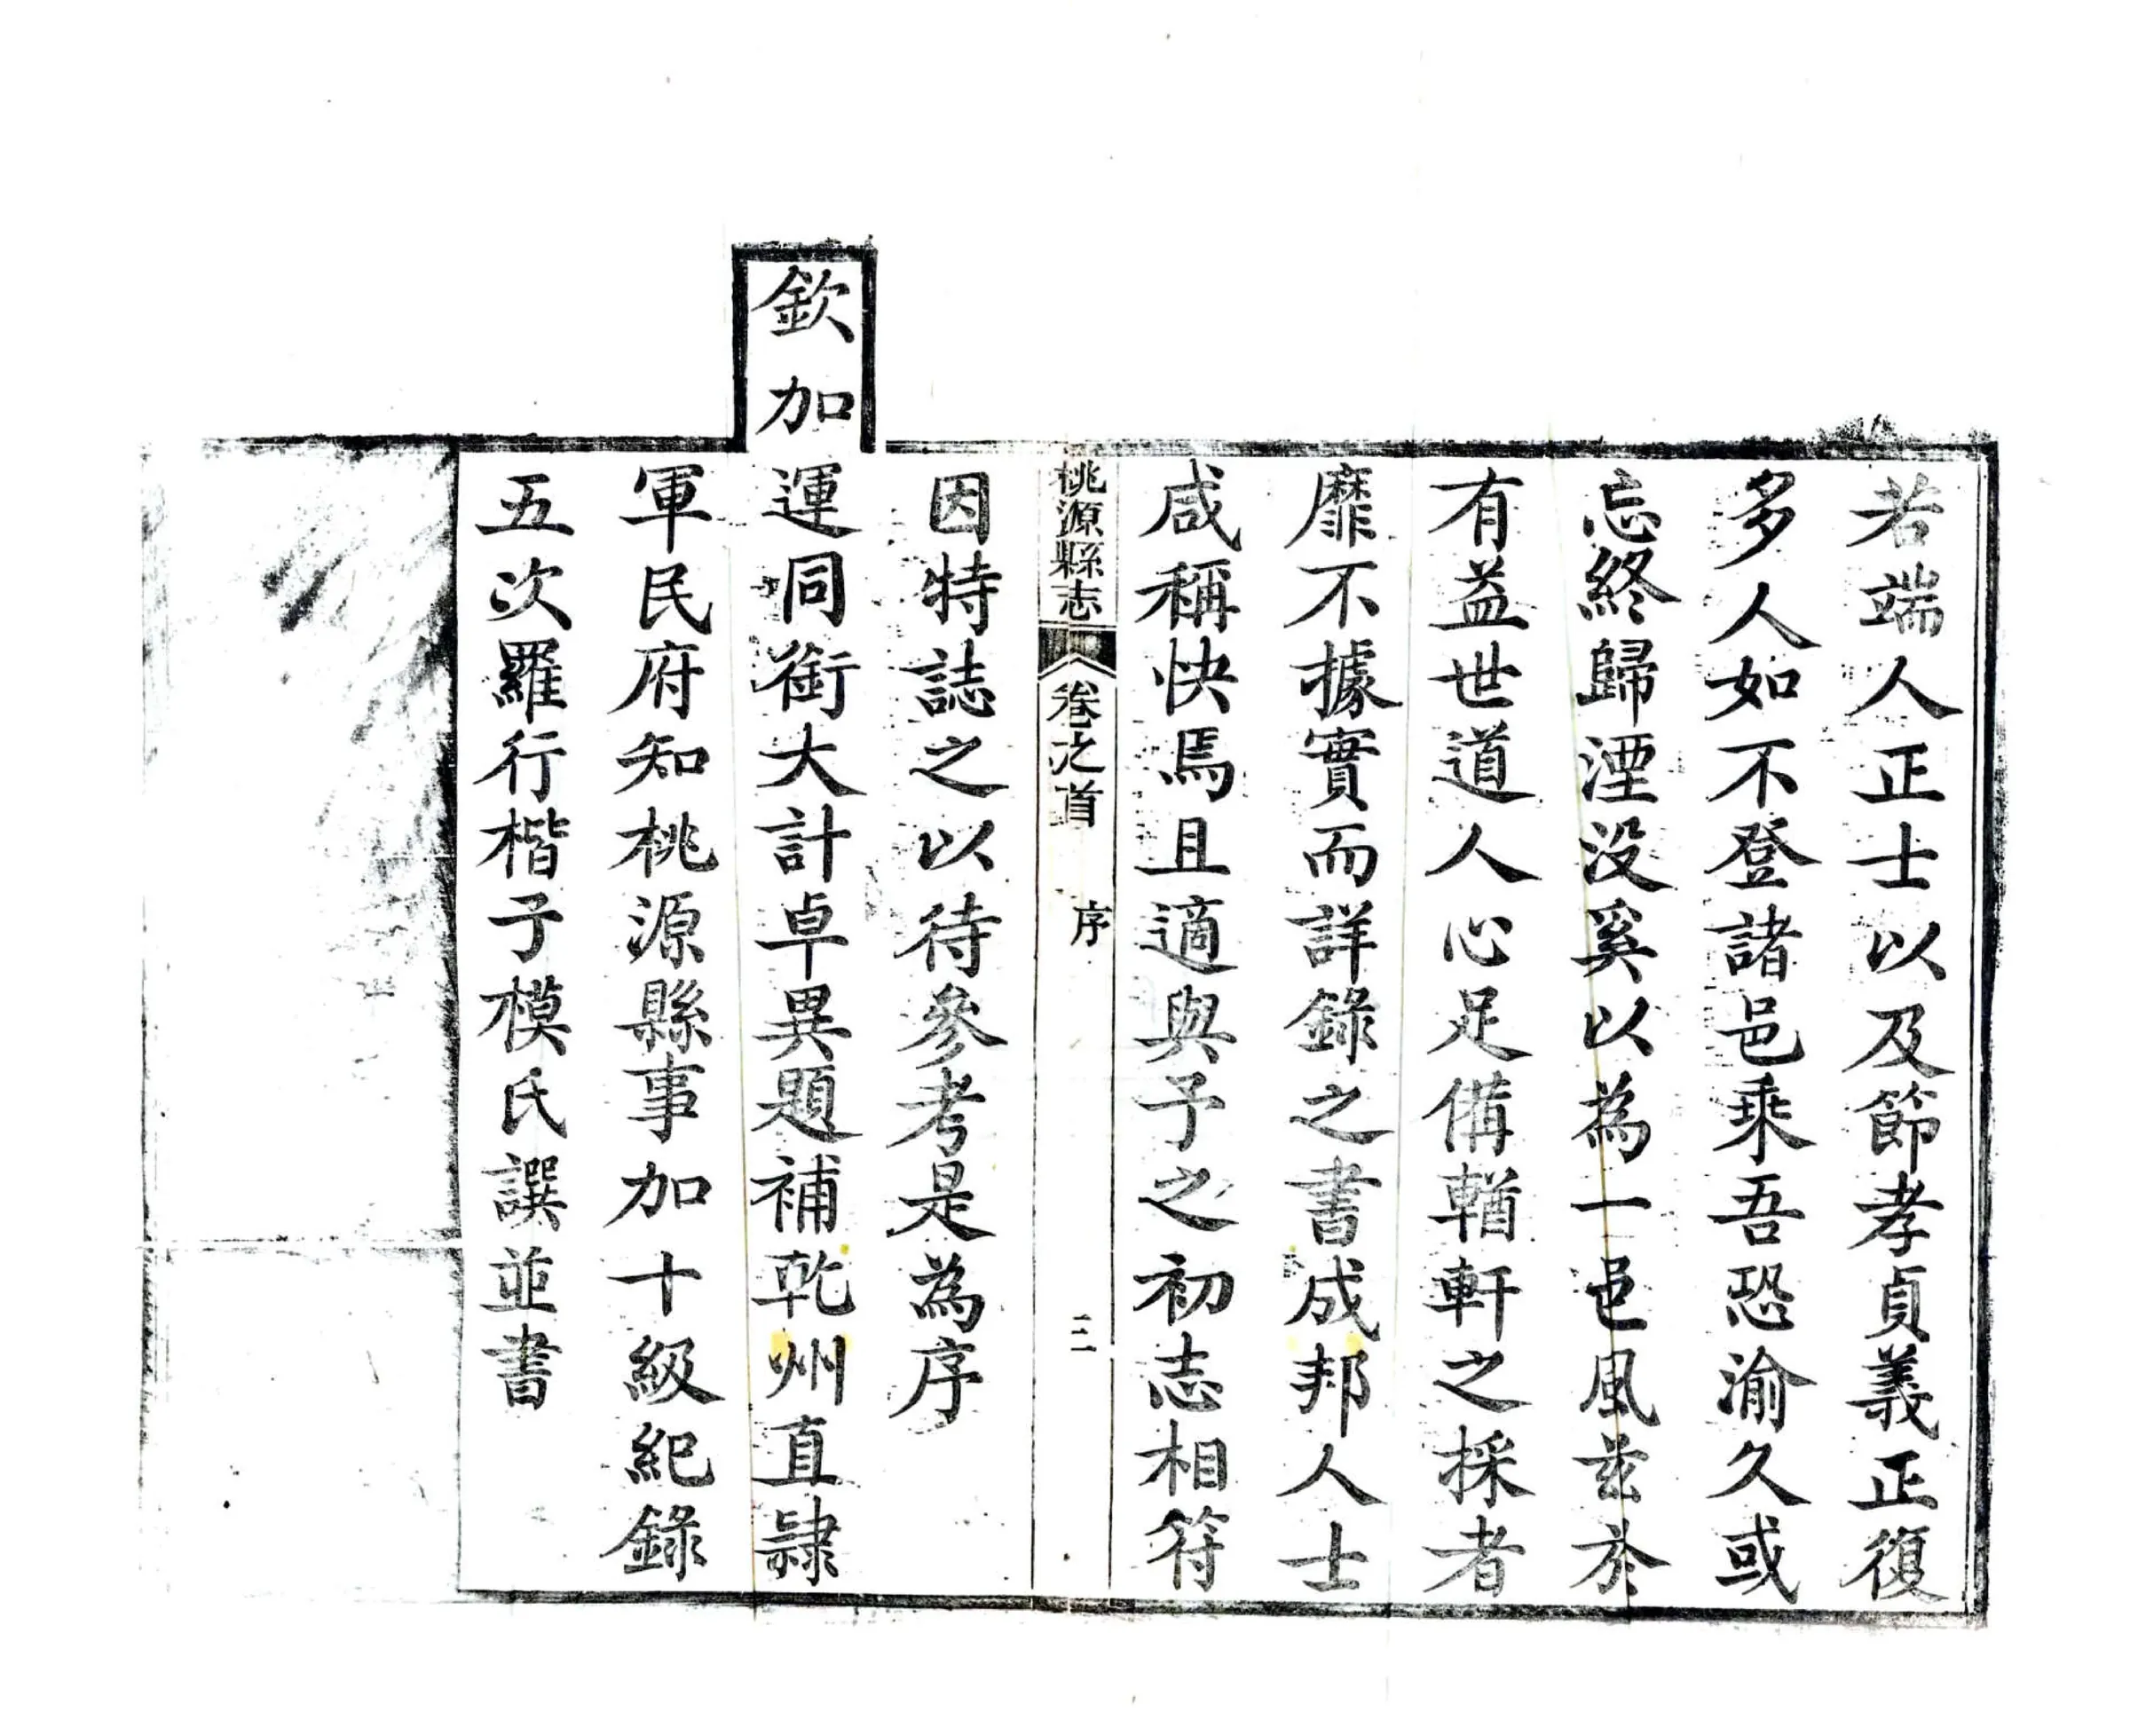 若端人正士以及節孝貞義正復
多人如不登諸邑乘吾恐渝久或
忘終歸湮没奚以為一邑風兹於
有益世道人心足備輶軒之採者
靡不據實而詳錄之書成邦人士
咸稱快焉且適與予之初志相符
桃源縣志 卷之首 序 三
因特誌之以待參考是為序
欽加運同銜大計卓異題補乾州直隸
軍民府知桃源縣事加十級紀錄
五次羅行楷子模氏譔並書